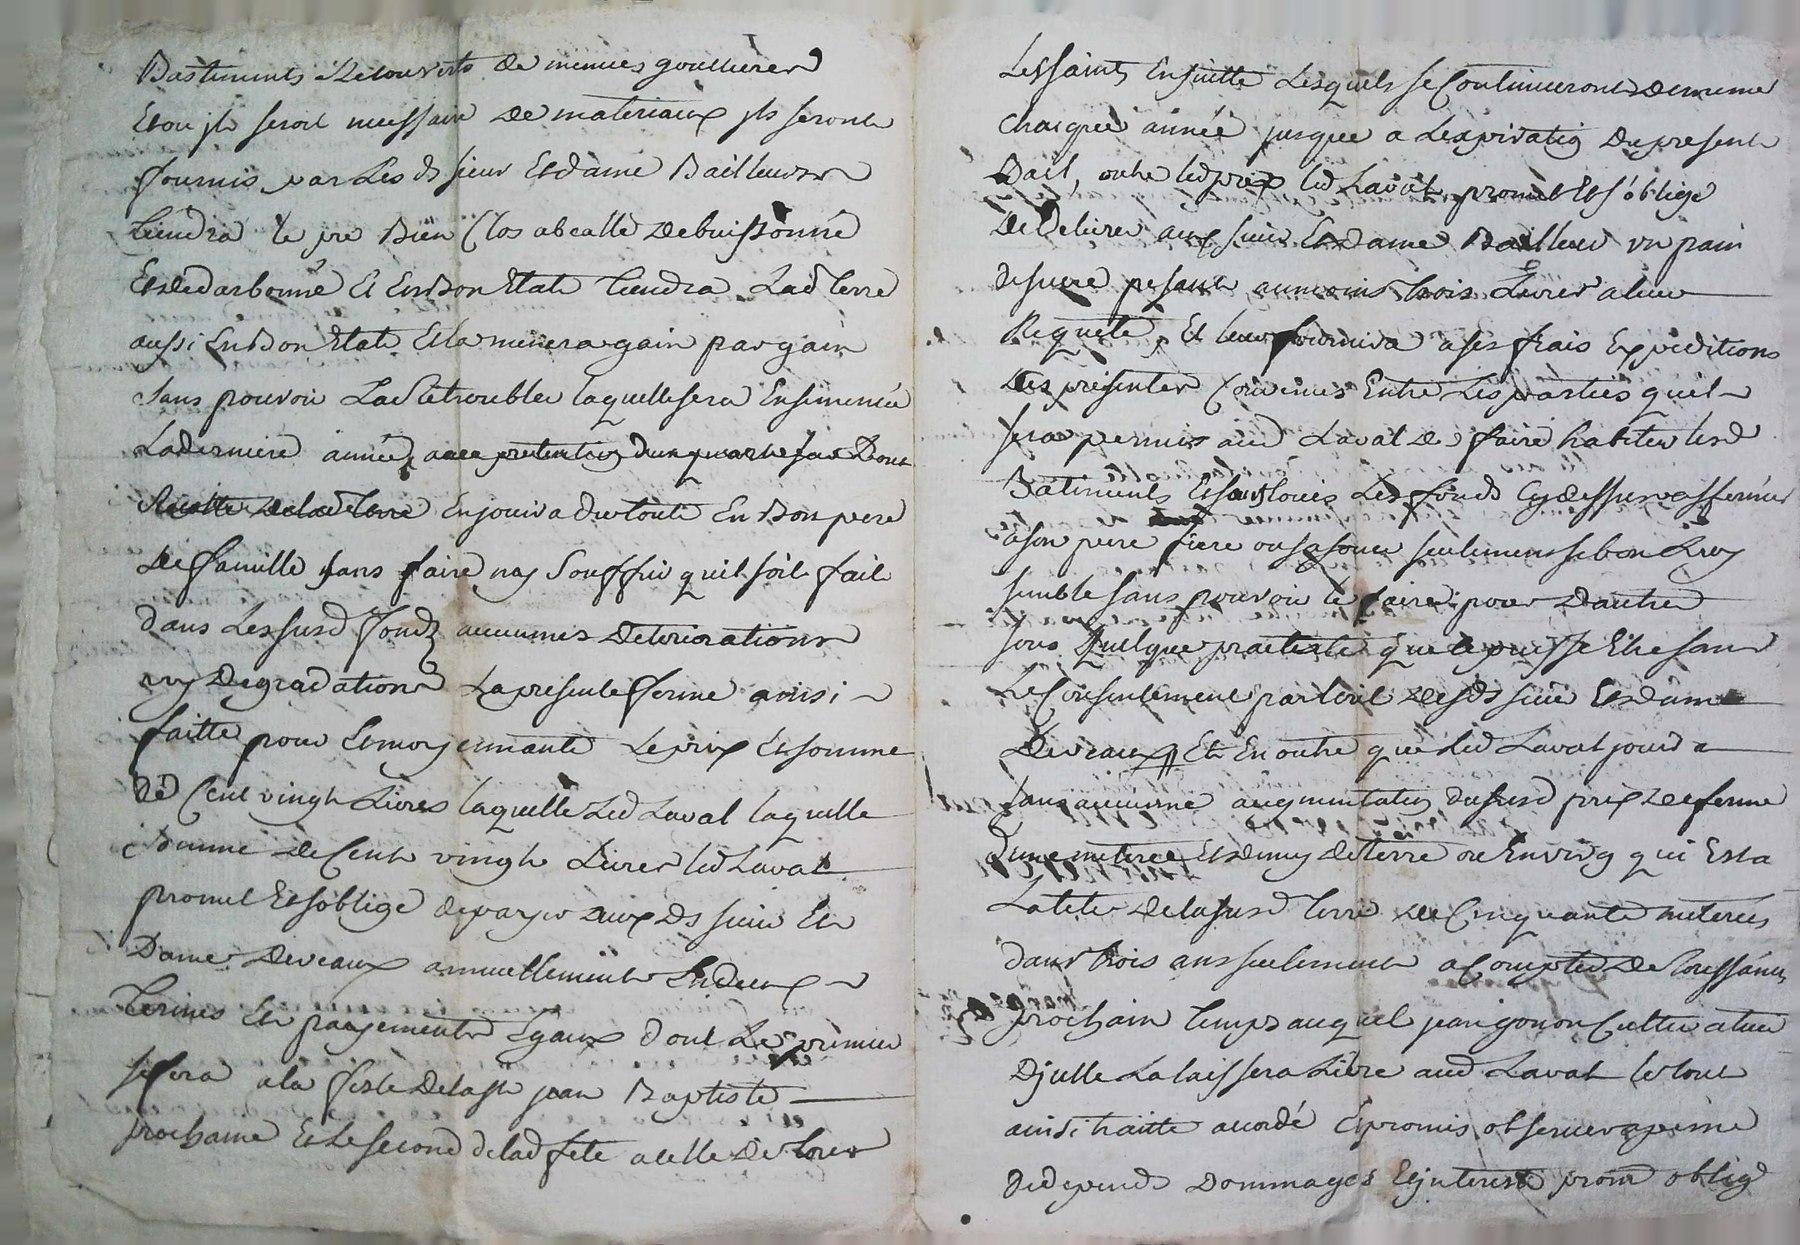 Bastiments Recouverts de menues gouttieres
Et ou jls seroit necessaire de materiaux jls seront
fournis par Les ds sieur Et dame Bailleurs
tiendra le pré Bien Clos abcatté debuissonné
Et dedarbonné Et En Bon Etat tiendra Lad terre
aussi En Bon Etat Et la menera gain par gain
sans pouvoir La detroubler laquelle sera Ensemencée
La derniere année, avec
En jouira du tout En Bon pere
de famille sans faire ny souffrir quil soit fait
dans Les susd fondz aucunnes deteriorations
ny degradations La presente ferme ainsi
faitte pour Et moyennante Le prix Et somme
de Cent vingt Livres laquelle Led Laval laquelle
somme de Cent vingt Livres led Laval
promet Et soblige de payer aux ds sieur Et
Dame Deveaux annuellement En deux
termes Et payements Egaux dont Le premier
se fera a la feste de la St jean Baptiste
prochaine Et le second de lad fete a celle de tous
Les saints Ensuitte Lesquels se Continueront de meme
chacque année jusque a Lexpiration du present
Bail, outre led prix led Laval promet Et s'oblige
de Delivrer aux sieur Et dame Bailleurs un pain
de sucre pesant aumoins trois Livres a leur
Requete, Et leur fournira a ses frais Expeditions
des presentes Convenus Entre Les parties quil
sera permis aud Laval de faire habiter lesd
Batiments Et sous louer Les fonds Cy dessus affermés
a son pere frere ou sa soeur seulement se bon Luy
semble sans pouvoir le faire pour dautres
sous quelque praetexte que ce puisse Etre sans
Le Consentement par Ecrit desds sieur Et dame
Deveaux Et En outre que led Laval jouira
sans aucunne augmentation du susd prix de ferme
dune meteree Et demy de terre ou Environ qui Est a
La tete de la susd terre de Cinquante meterées
dans trois ans seulement a Compter de Toussaints
prochain temps auquel jean gonon Cultivateur
Djcelle La laissera Libre aud Laval le tout
ainsi traitté accordé Et promis observer a peine
de depends Dommages Et jnterests prom oblig